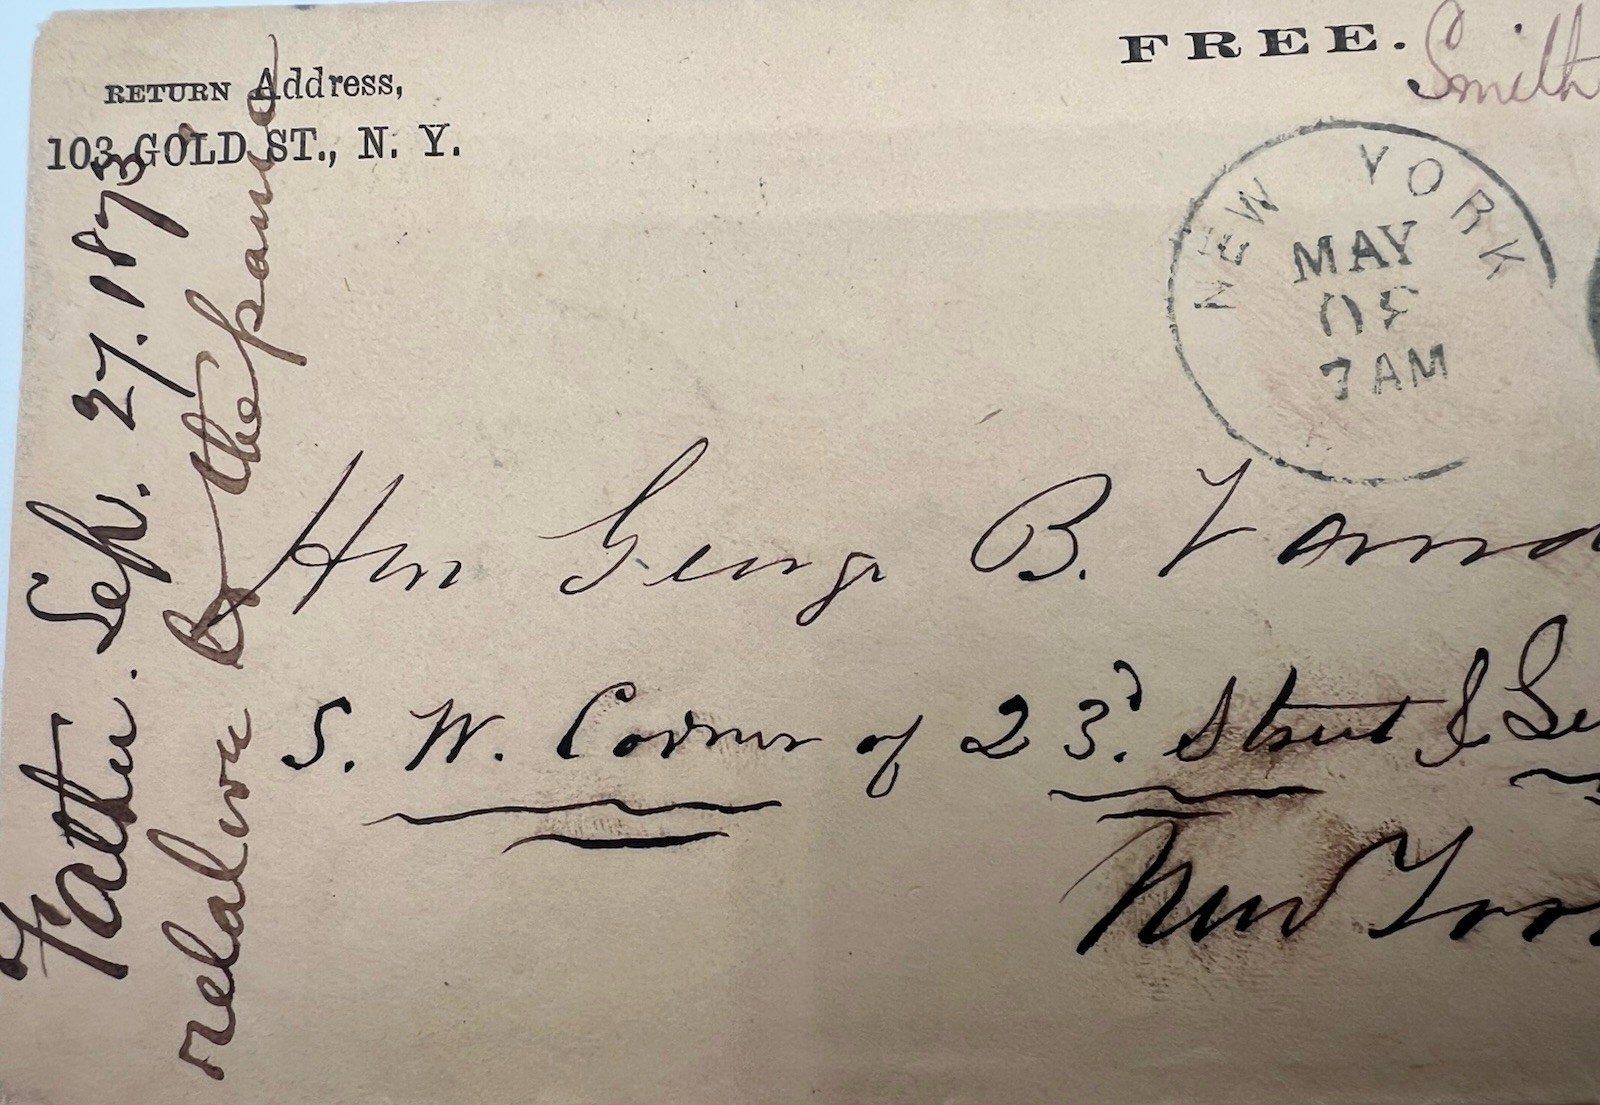 RETURN Address,
103 GOLD ST., N. Y.
FREE.
Smith
NEW YORK
MAY
7 AM
Hon George B. Vand
S. W. Corner of 23d. Street & Se
New York
Father. Sep. 27. 1873
relative to the panic